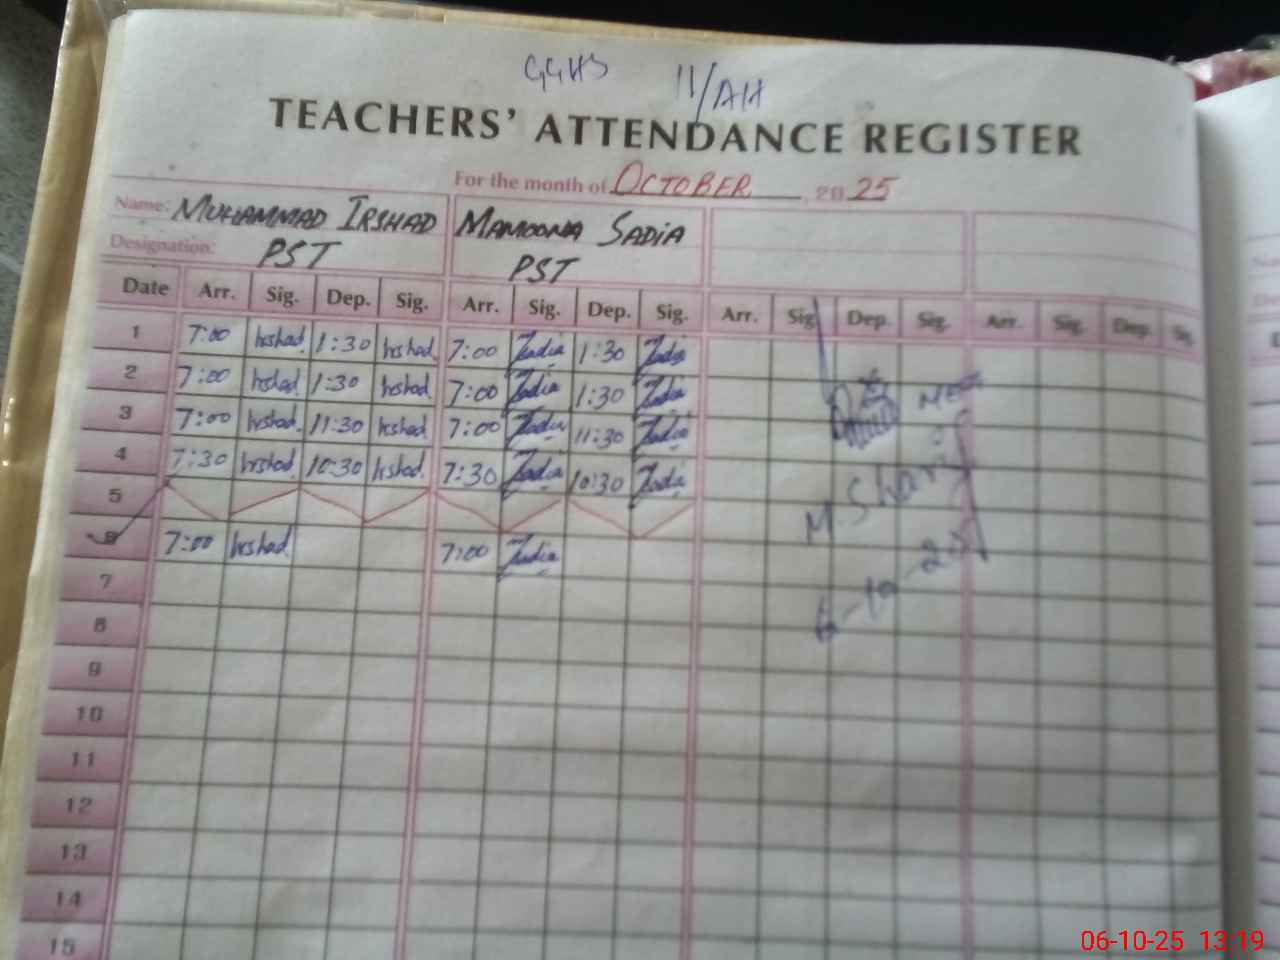 GGHS 11/AH
TEACHERS' ATTENDANCE REGISTER
For the month of OCTOBER, 2025
Name: MUHAMMAD IRSHAD MAMOONA SADIA
Designation: PST PST
Date Arr. Sig. Dep. Sig. Arr. Sig. Dep. Sig. Arr. Sig. Dep. Sig. Arr. Sig. Dep. Sig.
1 7:00 Irshad 1:30 Irshad 7:00 Sadia 1:30 Sadia
2 7:00 Irshad 1:30 Irshad 7:00 Sadia 1:30 Sadia
3 7:00 Irshad 11:30 Irshad 7:00 Sadia 11:30 Sadia
4 7:30 Irshad. 10:30 Irshad. 7:30 Sadia 10:30 Sadia
5
6 7:00 Irshad 7:00 Sadia
M. Sharif
6-10-25
7
8
9
10
11
12
13
14
15
06-10-25 13:19